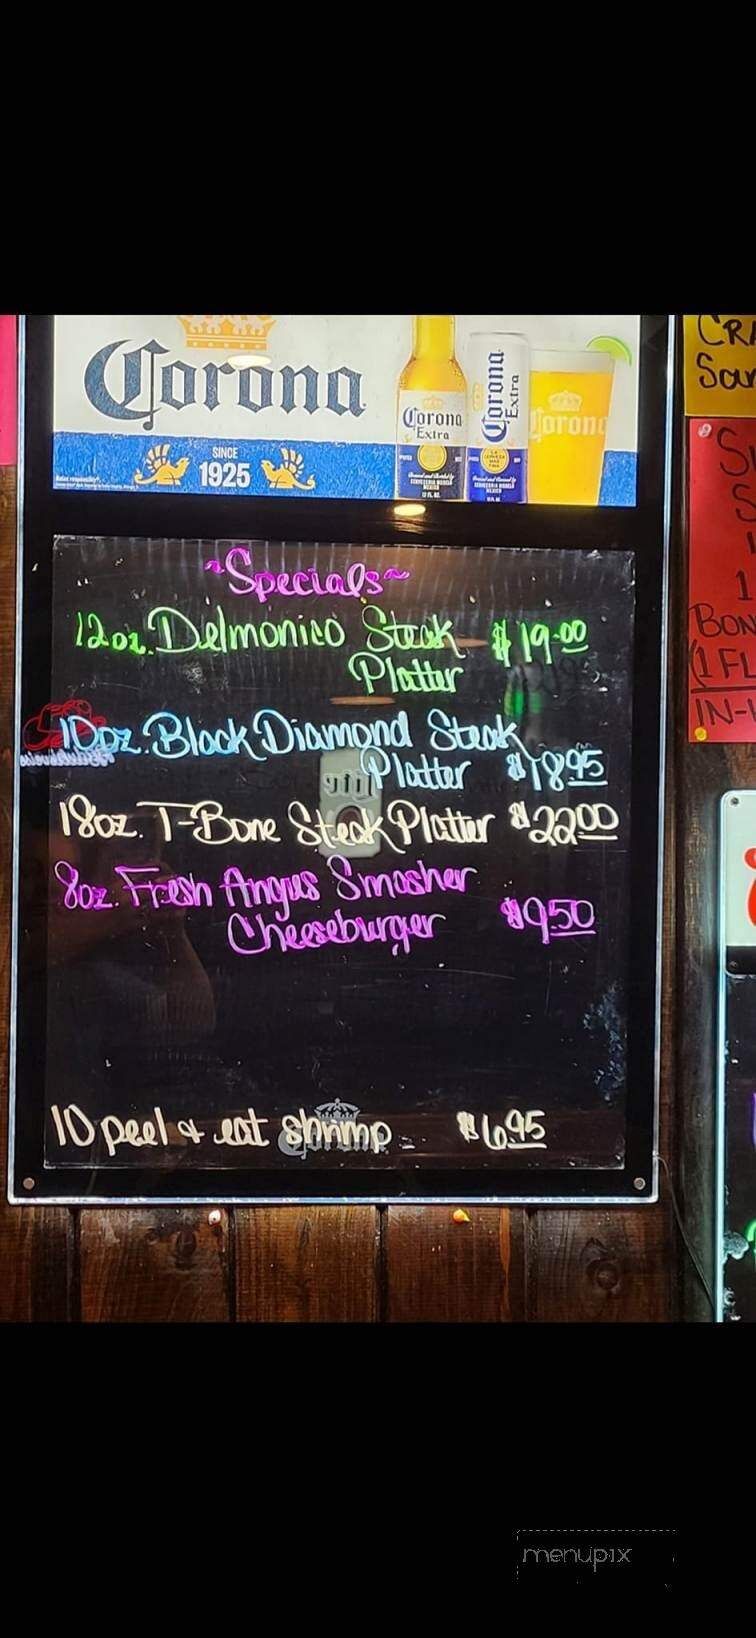 Corona
Corona
Extra
Corona
Extra
Corona
SINCE
1925
CRA
Sa
~Specials~
12oz. Delmonico Steak $19.00
Platter
10oz. Black Diamond Steak
Platter $18.95
18oz. T-Bone Steak Platter $22.00
8oz. Fresh Angus Smasher
Cheeseburger $9.50
10 peel & eat shrimp $6.95
S
S
1
1
BON
(1 FL
IN-
menupix